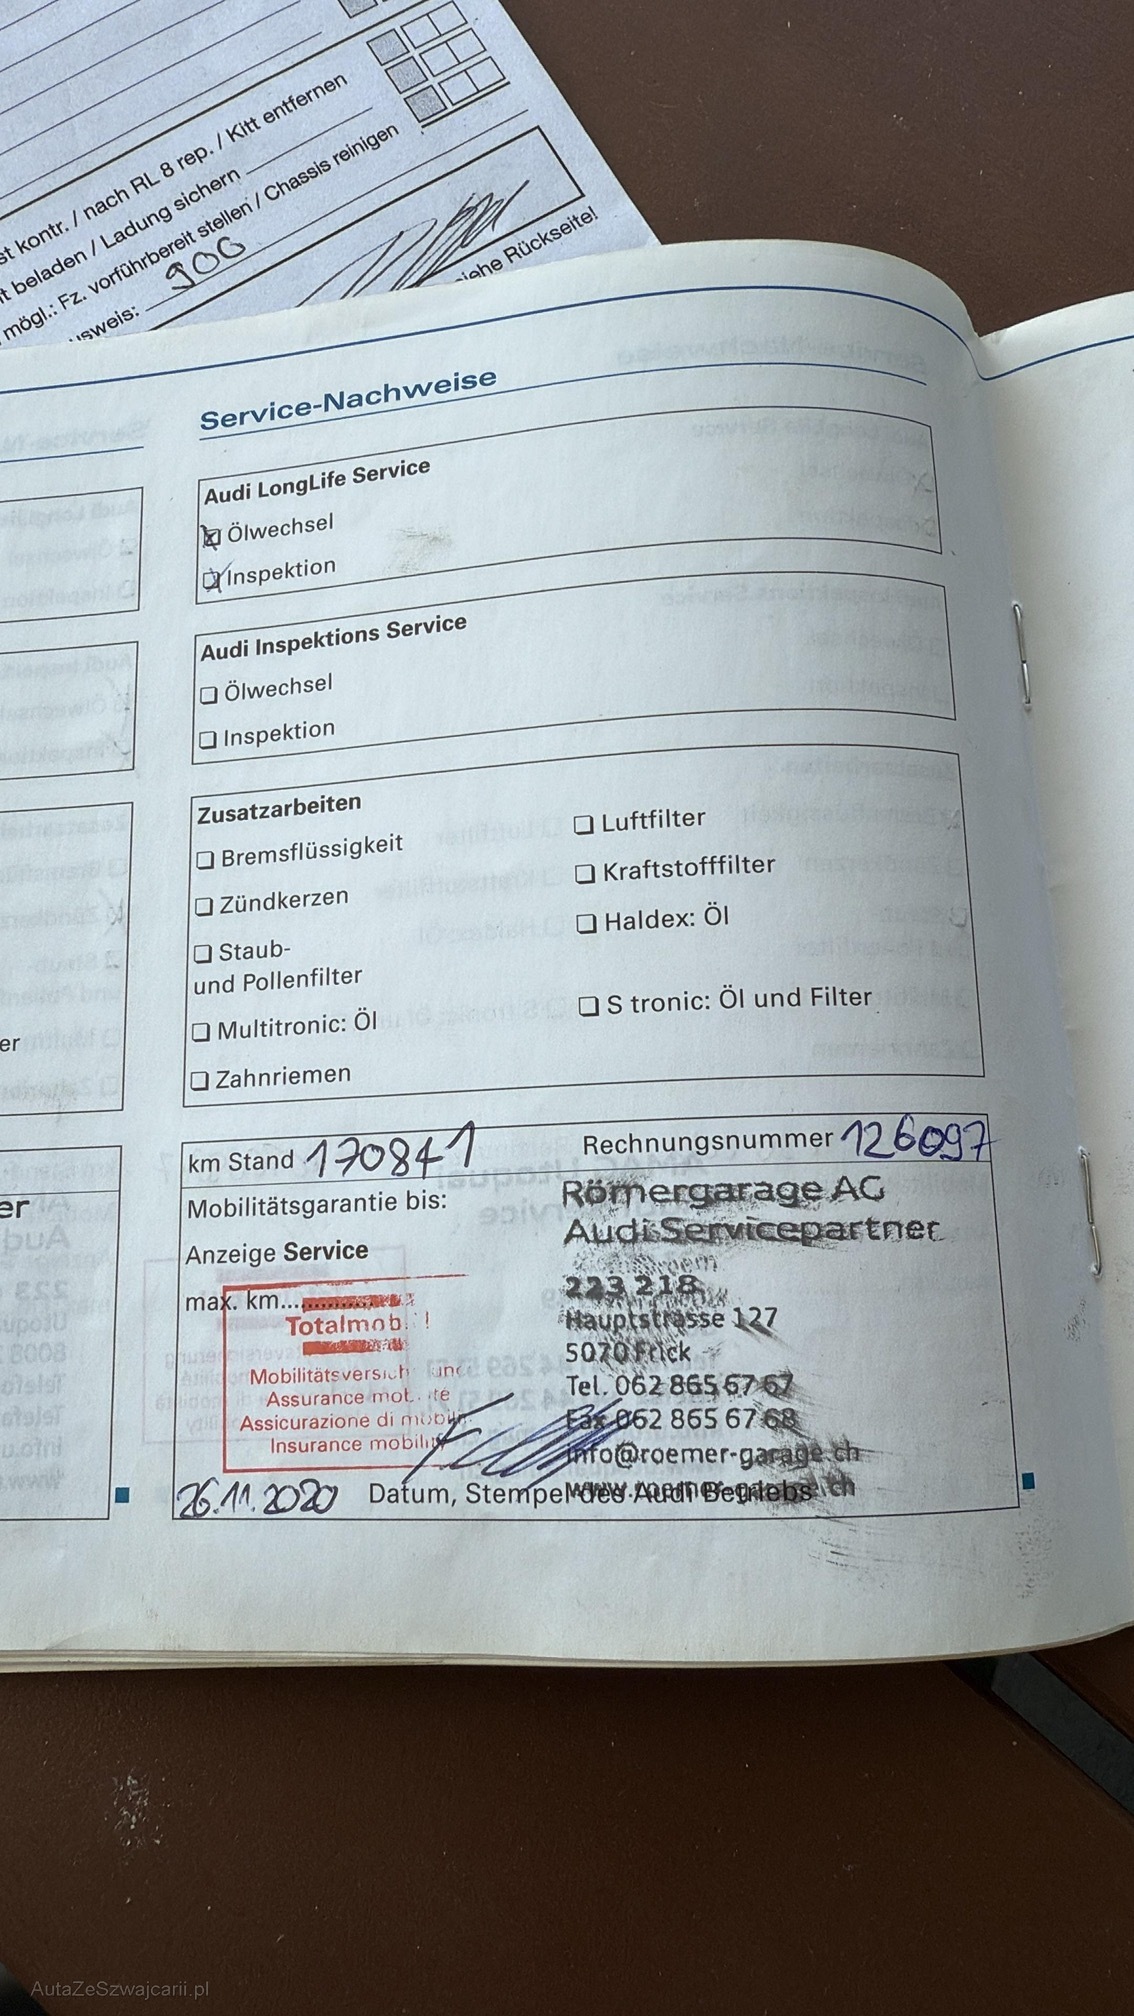 st kontr. / nach RL 8 rep. / Kitt entfernen
t beladen / Ladung sichern
mögl.: Fz. vorführbereit stellen / Chassis reinigen
usweis: 900
siehe Rückseite!
Service-Nachweise
Audi LongLife Service
Ölwechsel
Inspektion
Audi Inspektions Service
Ölwechsel
Inspektion
Zusatzarbeiten
Bremsflüssigkeit
Luftfilter
Zündkerzen
Kraftstofffilter
Staub-
und Pollenfilter
Haldex: Öl
Multitronic: Öl
S tronic: Öl und Filter
Zahnriemen
er
km Stand 170841
Rechnungsnummer 126097
Mobilitätsgarantie bis:
Römergarage AG
Audi Servicepartner
Anzeige Service
max. km
223 218
Totalmob !
Hauptstrasse 127
5070 Frick
Mobilitätsversich ung
Tel. 062 865 67 67
Assurance mob te
Fax 062 865 67 68
Assicurazione di mobil
Insurance mobili
info@roemer-garage.ch
er
26.11.2020 Datum, Stempel des Audi Betriebs
AutaZeSzwajcarii.pl